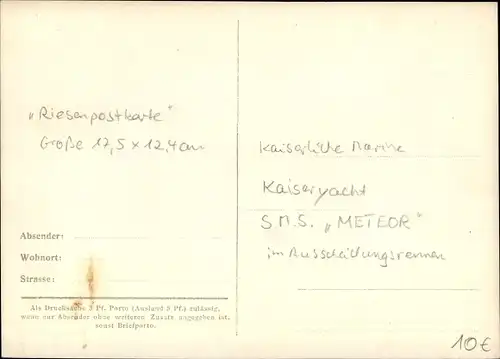 „Riesenpostkarte"
Große 17,5 x 12,4 cm
Absender:
Wohnort:
Strasse:
Als Drucksache 3 Pf. Porto (Ausland 5 Pf.) zulässig,
wenn nur Absender ohne weiteren Zusatz angegeben ist,
sonst Briefporto.
Kaiserliche Marine
Kaiseryacht
S.M.S. „METEOR"
im Ausscheidungsrennen
10€